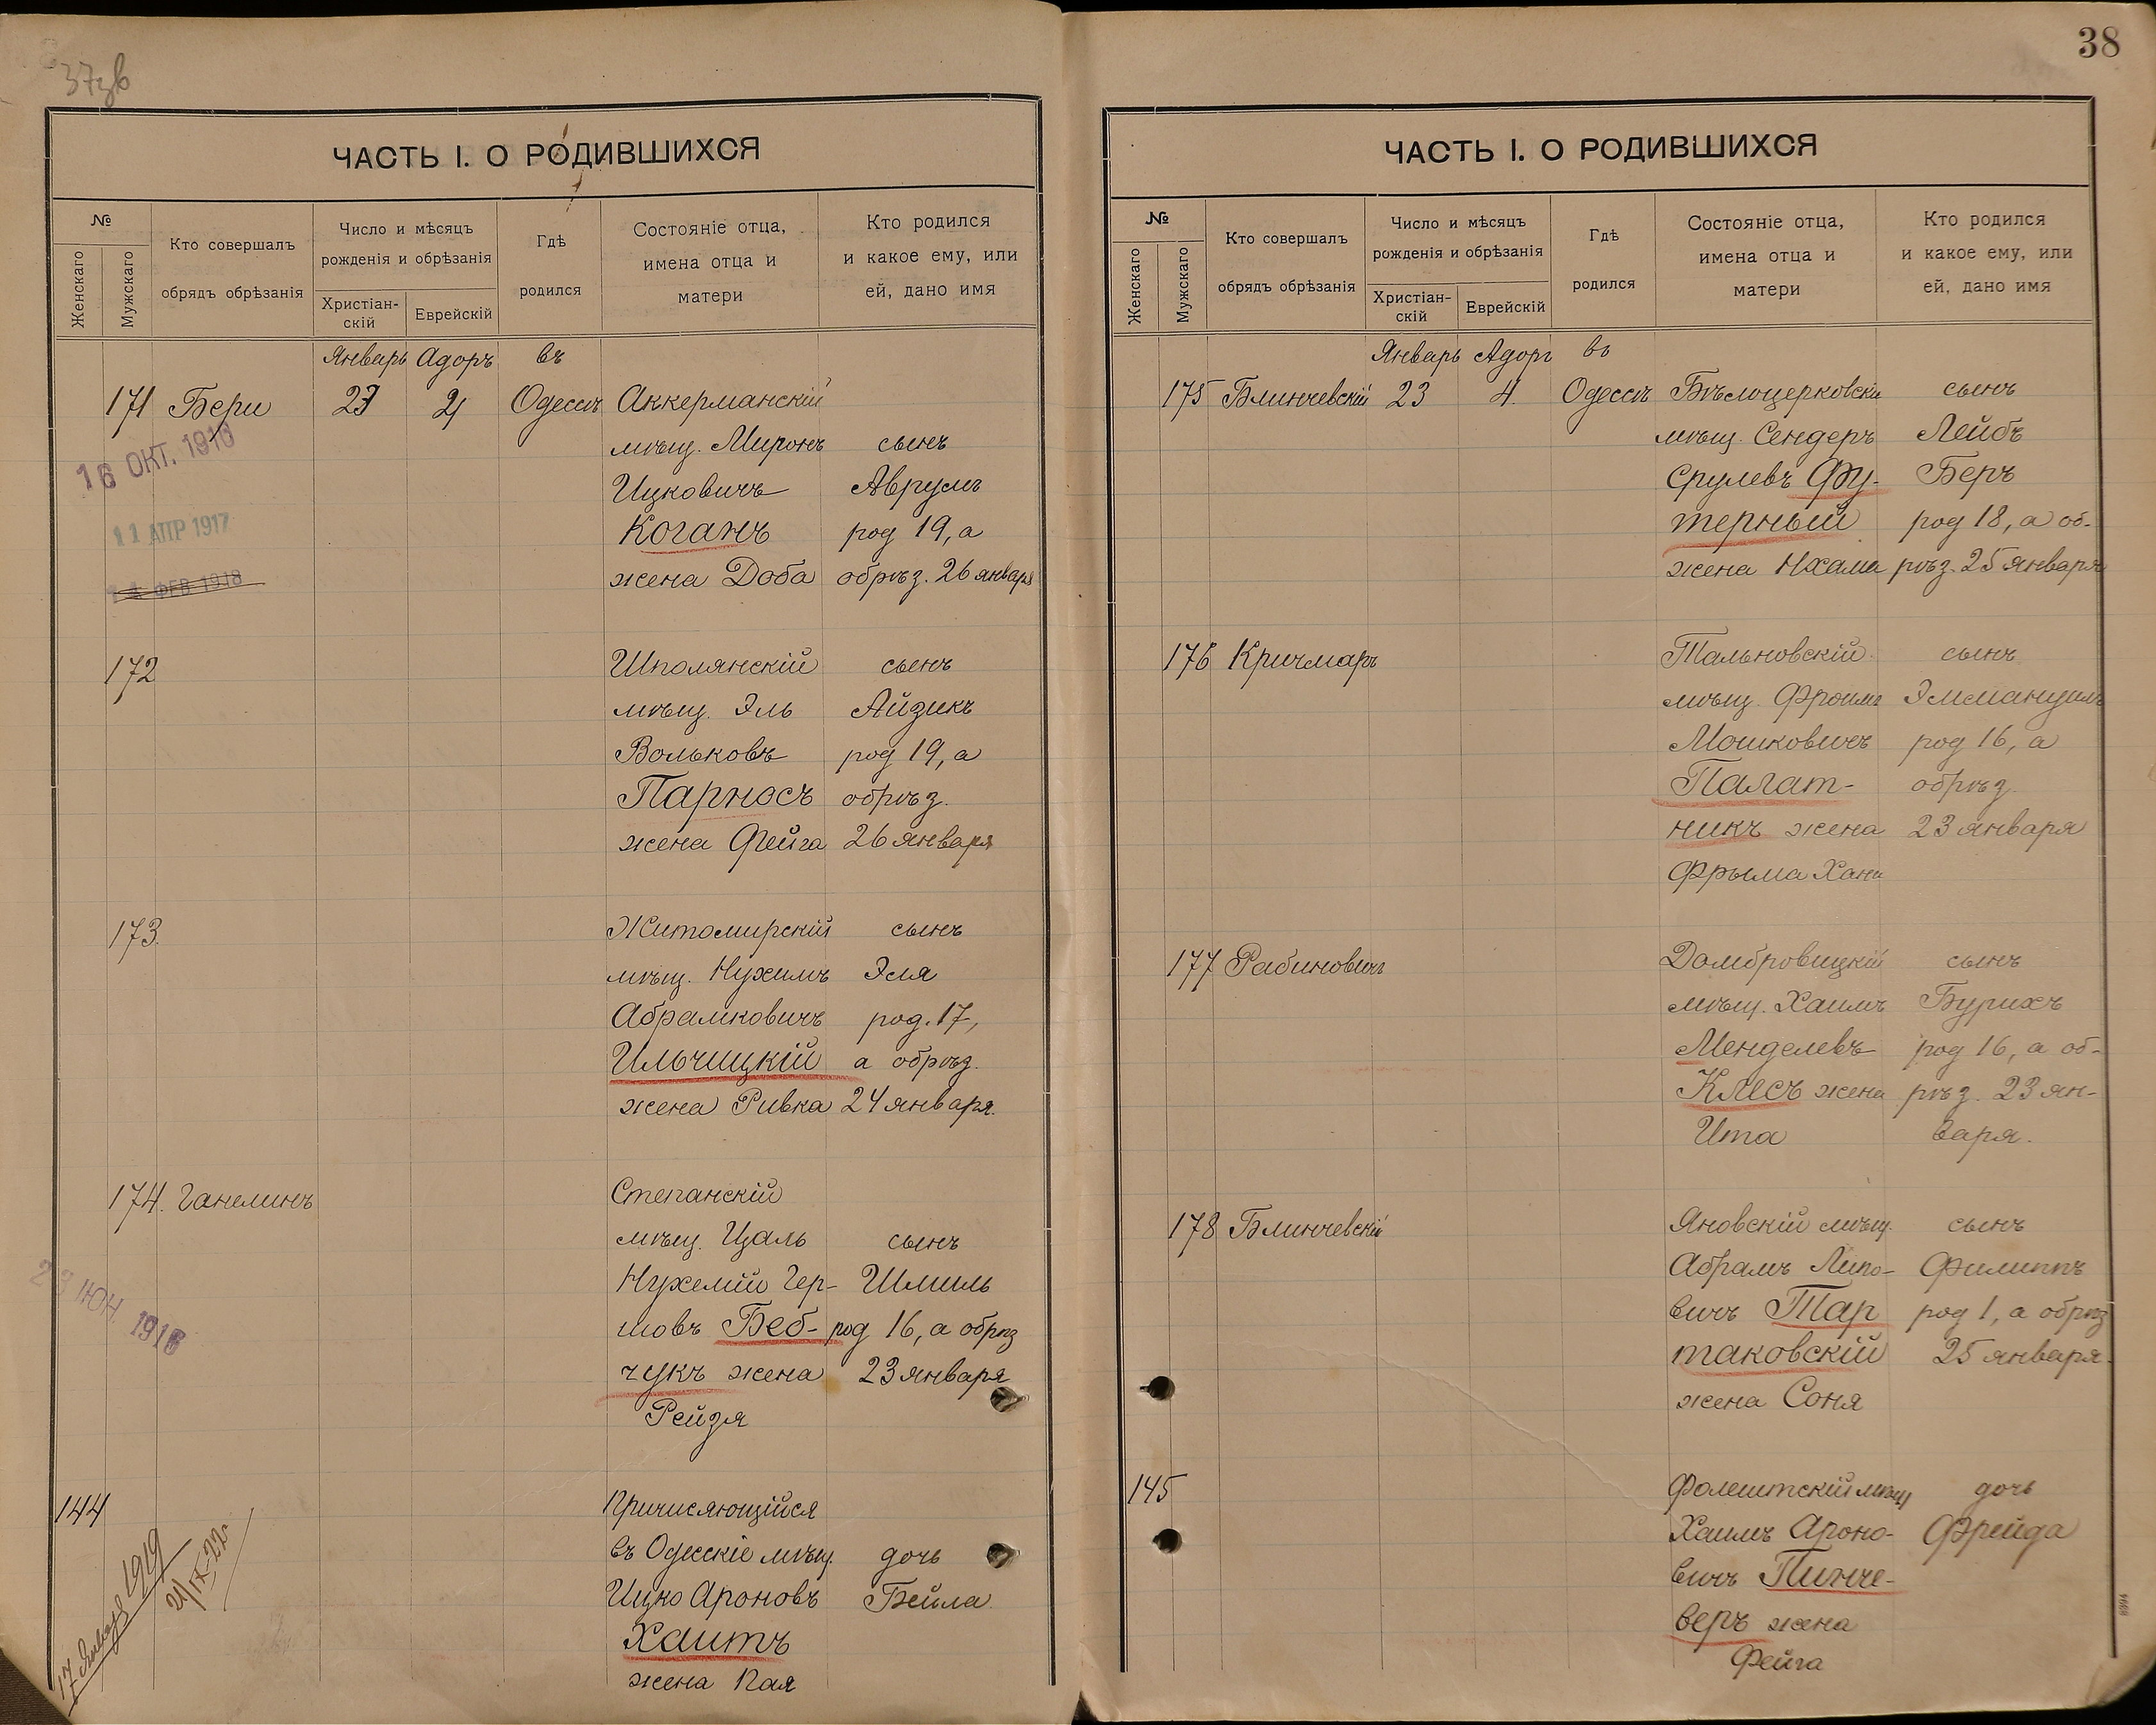 37 зв
ЧАСТЬ I. О РОДИВШИХСЯ
№
Женскаго
Мужскаго
Кто совершалъ
обрядъ обрѣзанія
Число и мѣсяцъ
рожденія и обрѣзанія
Христіан-
скій
Еврейскій
Гдѣ
родился
Состояніе отца,
имена отца и
матери
Кто родился
и какое ему, или
ей, дано имя
Январь Адоръ въ
171 Бери 23 4 Одессѣ Аккерманскій
мѣщ. Миронъ сынъ
Ицковичъ Аврумъ
Коганъ род 19, а
жена Доба обрѣз. 26 января
16 ОКТ. 1916
11 АПР 1917
ФЕВ 1918
172 Шполянскій сынъ
мѣщ. Эль Айзикъ
Вольковъ род 19, а
Парносъ обрѣз.
жена Фейга 26 января
173. Житомирскій сынъ
мѣщ. Нухимъ Эля
Абрамковичъ род. 17,
Ильчицкій а обрѣз.
жена Ривка 24 января.
174. Ганелинъ Степанскій
мѣщ. Цаль сынъ
Нухемій Гер- Шмиль
шовъ Беб- род 16, а обрѣз
чукъ жена 23 января
Рейзя
ІЮН. 1916
144 Причисляющійся
въ Одесскіе мѣщ. дочь
Ицко Ароновъ Бейла
Хаитъ
жена Пая
17 Января 1919
21/IX-22
38
ЧАСТЬ I. О РОДИВШИХСЯ
№
Женскаго
Мужскаго
Кто совершалъ
обрядъ обрѣзанія
Число и мѣсяцъ
рожденія и обрѣзанія
Христіан-
скій
Еврейскій
Гдѣ
родился
Состояніе отца,
имена отца и
матери
Кто родился
и какое ему, или
ей, дано имя
Январь Адоръ въ
175 Блинчевскій 23 4. Одессѣ Бѣлоцерковскій сынъ
мѣщ. Сендеръ Лейбъ
Срулевъ Фу- Беръ
терный род 18, а об-
жена Нхама рѣз. 25 января
176 Кричмаръ Тальновскій сынъ
мѣщ. Фроимъ Эммануилъ
Мошковичъ род 16, а
Палат- обрѣз.
никъ жена 23 января
Фрыма Хана
177 Рабиновичъ Домбровицкій сынъ
мѣщ. Хаимъ Бурихъ
Менделевъ род 16, а об-
Клесъ жена рѣз. 23 ян-
Ита варя.
178 Блинчевскій Яновскій мѣщ. сынъ
Абрамъ Липо- Филиппъ
вичъ Тар род 1, а обрѣз
таковскій 25 января.
жена Соня
145 Фолештскій мѣщ дочь
Хаимъ Ароно- Фрейда
вичъ Пинче-
веръ жена
Фейга